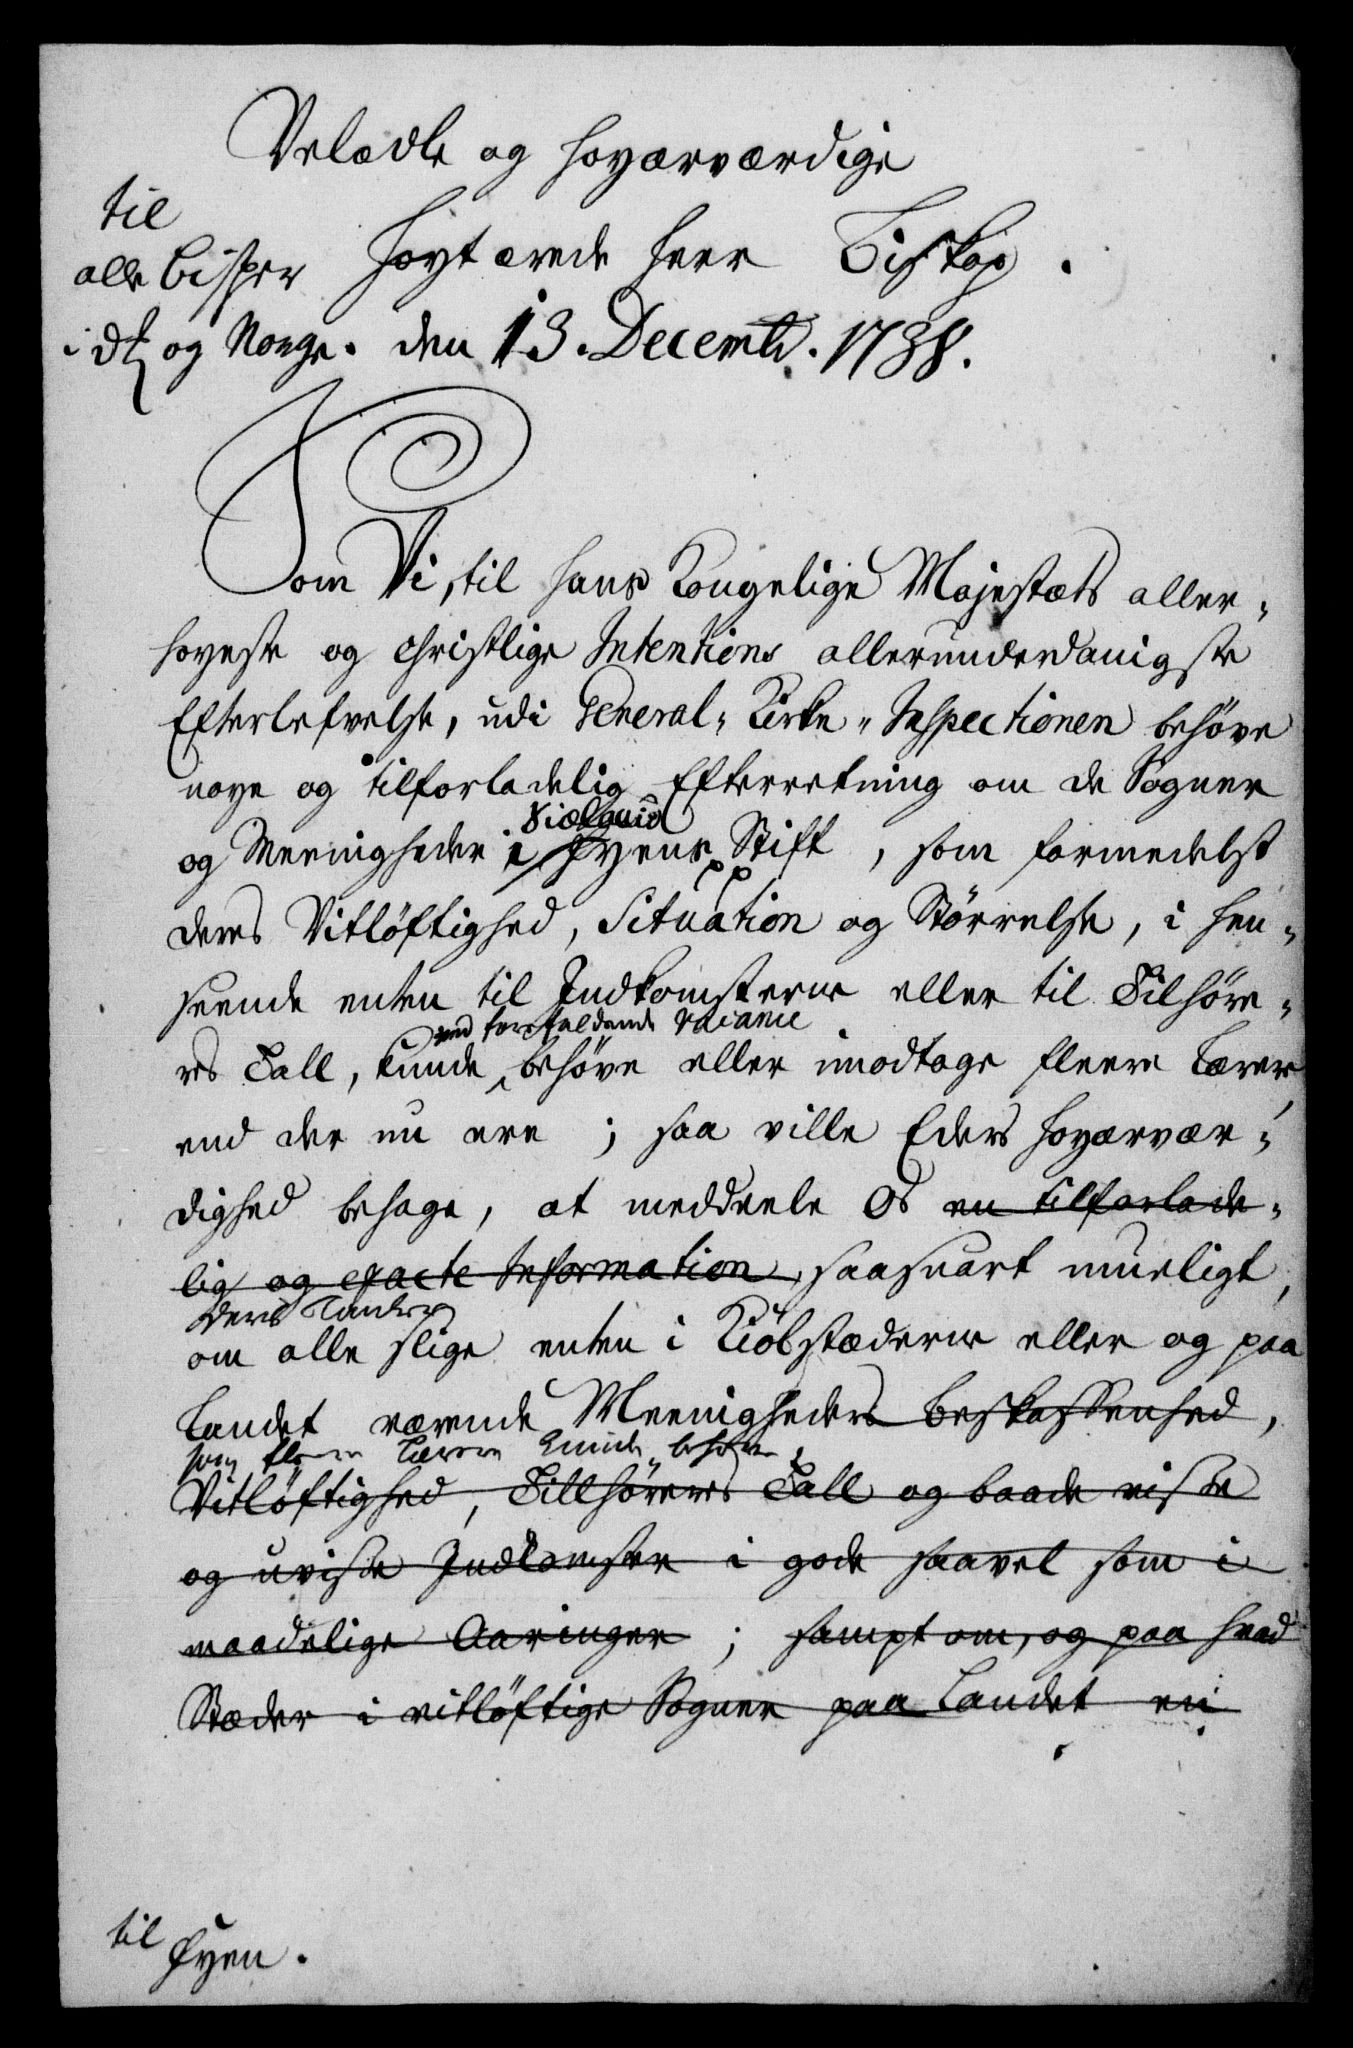 Velædle og Høyærværdige
til
alle Bisper
i dk og Norge.
Høyt ærede Herr Biskop.
den 13. Decembr. 1738.
Som Vi, til Hans Kongelige Majestæts aller-
høyeste og Christlige Intentions allerunderdanigste
Efterlefvelse, udi General-Kirke-Inspectionen behøve
nøye og tilforladelig Efterretning om de Sogner
Siæland
og Meenigheder i Fyens Stift, som formedelst
deres Vitløftighed, Situation og Størrelse, i Hen-
seende enten til Indkomsterne eller til Tilhøre-
ved forefaldende vacance
res Tall, kunde behøve eller imodtage fleere Lærere
end der nu ere; saa ville Eders Høyærvær-
dighed behage, at meddeele Os en tilforlade-
lig og exacte Information, saasnart mueligt,
Deris Tanker
om alle slige enten i Kiøbstæderne eller og paa
Landet værende Meenigheders beskaffenhed,
som fleere Lærere kunde behøve
Vitløftighed, Tillhørernes Tall og baade visse
og uvisse Indkomster i gode saavel som i
maadelige Aaringer; sampt om, og paa hvad
Stæder i vitløftige Sogner paa Landet en
til
Fyen.